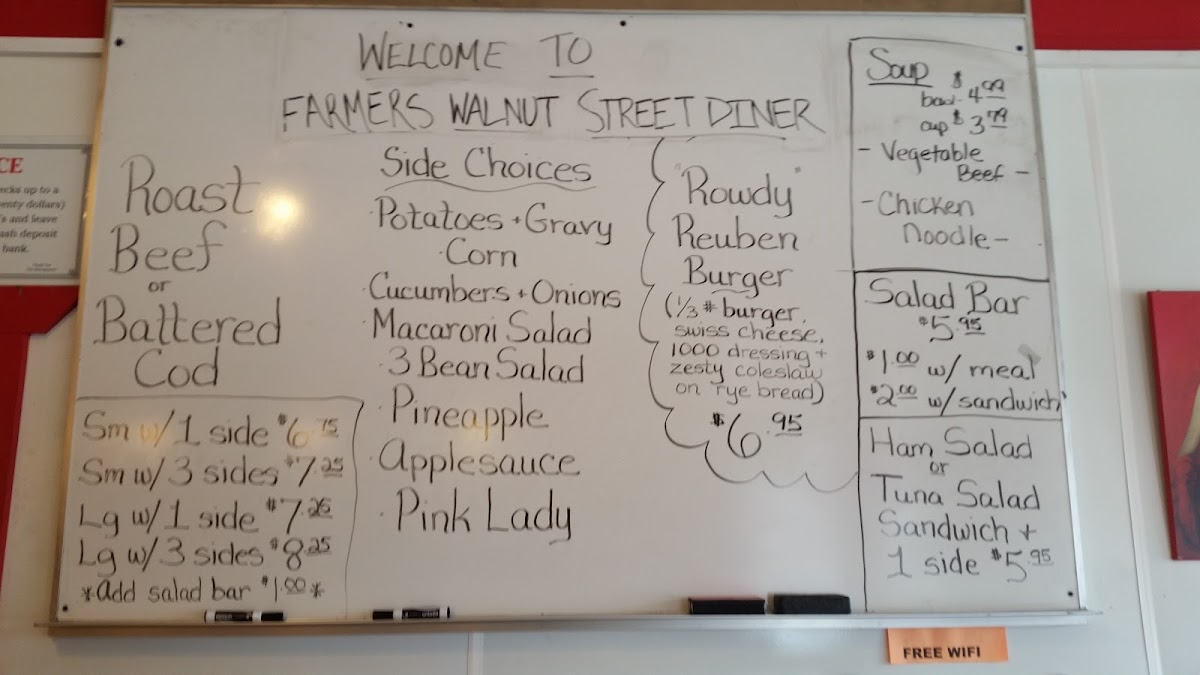 WELCOME TO
FARMERS WALNUT STREET DINER
Roast
Beef
or
Battered
Cod
Sm w/ 1 side $6.75
Sm w/ 3 sides $7.25
Lg w/ 1 side $7.25
Lg w/ 3 sides $8.25
*Add salad bar $1.00*
Side Choices
·Potatoes + Gravy
·Corn
·Cucumbers + Onions
·Macaroni Salad
·3 Bean Salad
·Pineapple
·Applesauce
·Pink Lady
"Rowdy"
Reuben
Burger
(1/3 # burger,
swiss cheese,
1000 dressing +
zesty coleslaw
on rye bread)
$6.95
Soup
bowl $4.99
cup $3.79
- Vegetable
Beef -
- Chicken
noodle -
Salad Bar
$5.95
$1.00 w/ meal
$2.00 w/ sandwich
Ham Salad
or
Tuna Salad
Sandwich +
1 side $5.95
CE
ecks up to a
enty dollars)
's and leave
ash deposit
bank.
FREE WIFI